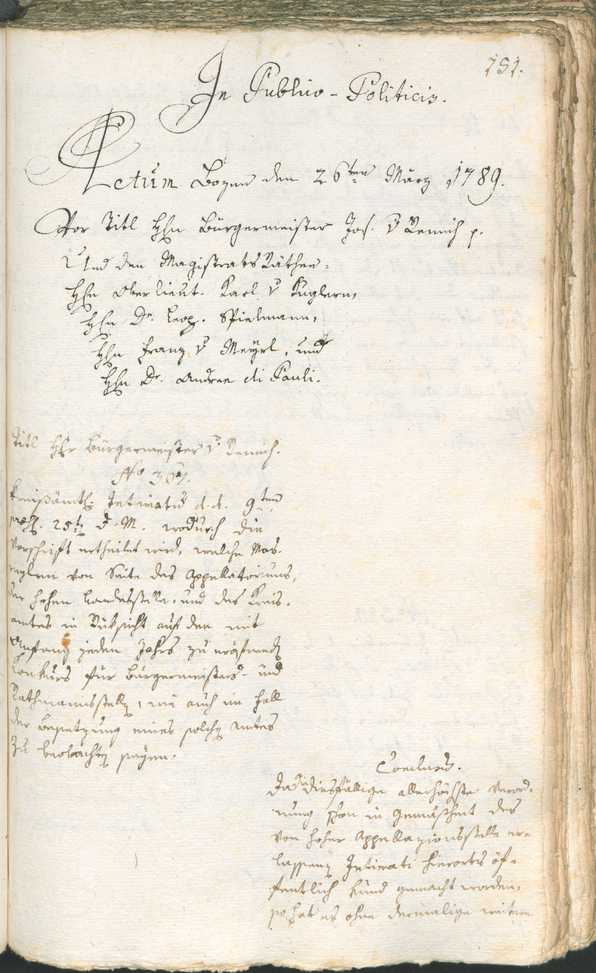 151.
In Publico-Politicis.
Actum Bozen den 26ten März 1789.
Vor Titl Hhn Bürgermeister Jos. v Remich p.
Und den Magistrats Räthen,
Hhn Oberlieut. Karl v Kuglern,
Hhn Dr. Leop. Spielmann,
Hhn Franz v Mayrl, und
Hhn Dr. Andree di Pauli.
Titl Hhr Bürgermeister v Remich.
No 367.
Kreißämtl. Intimatū d.d. 9ten
präs. 25ten d. M. wodurch die
Vorschrift ertheilet wird, welche Mas-
reglen von Seite des Appellatoriums,
der hohen Landesstelle, und des Kreis-
amtes in Rüksicht auf den mit
Anfang jeden Jahrs zu eröfnend
Konkurs für Bürgermeisters- und
Rathmannsstelle, wie auch im Fall
der Besetzung eines solchen Amtes
zu beobachten seyen.
Conclus.
Da diesfällige allerhöchste Verord-
nung schon in Gemäßheit des
von hoher Appellazionsstelle er-
lassenen Intimati hierorts öf-
fentlich kund gemacht worden,
so hat es ohne dermalige weitere